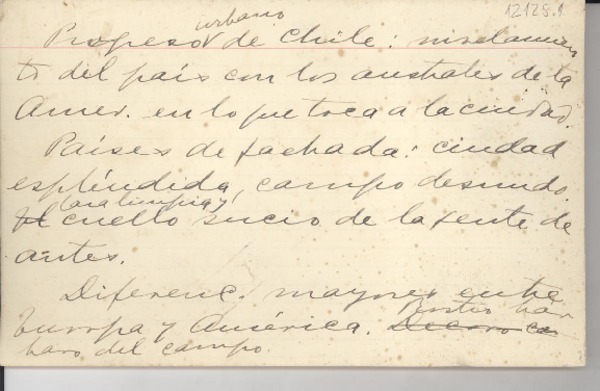 12125.1
urbano
Progreso de Chile: nivelamien
to del país con los australes de la
Amer. en lo que toca a la ciudad.
Países de fachada: ciudad
espléndida, campo desnudo.
Cara limpia y
cuello sucio de la gente de
antes.
Diferenc. mayores entre
Europa y América. Rostro bár
baro del campo.